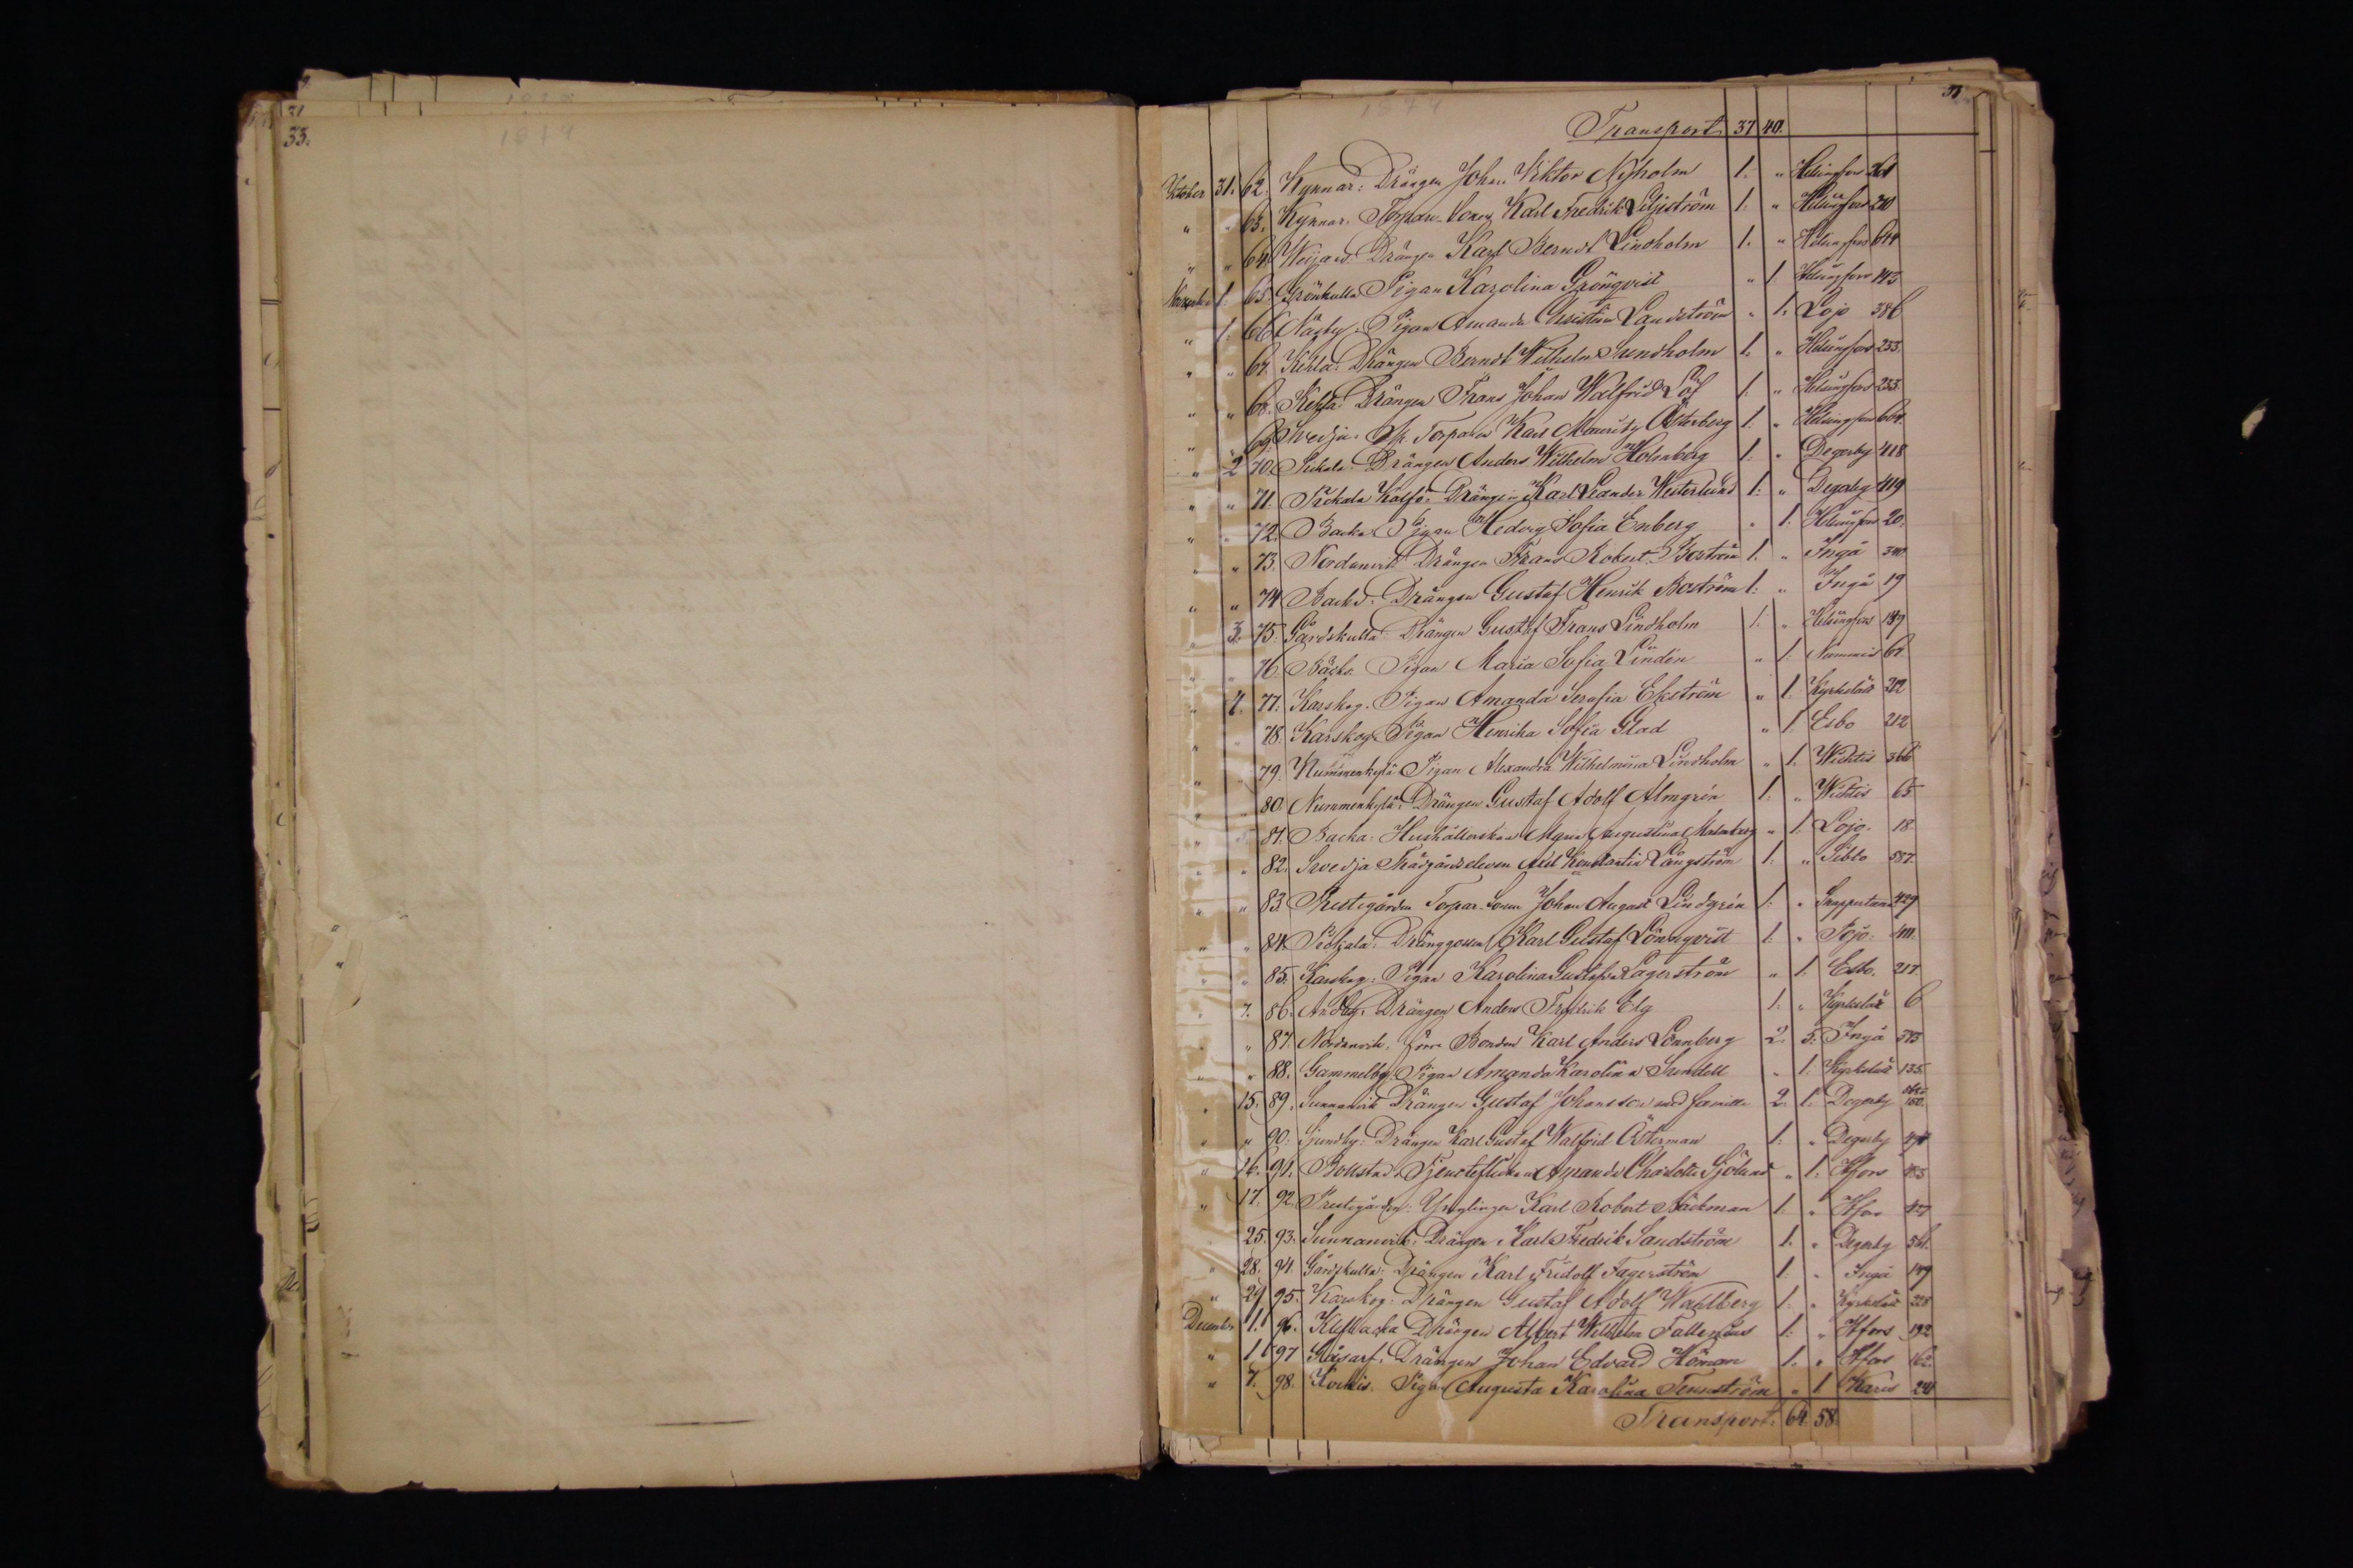 31.
33.
1879
1879
Transport. 37 40.
October 31. 62. Kynnar: Drängen Johan Viktor Nyholm 1: " Helsingfors 261
" " 63. Kynnar. Torpare Sonen Karl Fredrik Liljeström 1: " Helsingfors 210
" " 64. Drängen Karl Berndt Lindholm 1. " Helsingfors 644
November 1: 65. Grönkulla Pigan Karolina Grönqvist " 1 Helsingfors 143
" 1: 66. Näsby. Pigan Amanda Christina Landström " 1. Lojo 386
" " 67. Kehla: Drängen Berndt Wilhelm Sundholm 1. " Helsingfors 233.
" " 68. Kehla: Drängen Frans Johan Walfrid Löf 1. " Helsingfors 233.
" " 69. Svedja. Torparen Karl Mauritz Österberg 1: " Helsingfors 604.
" 2 70. Pickala: Drängen Anders Wilhelm Holmberg 1: " Degerby 418
" " 71. Pickala Kalfö: Drängen Karl Leander Westerlund 1: " Degerby 419
" " 72. Backa. Pigan Hedvig Sofia Enberg " 1: Helsingfors 20.
" " 73. Nordanvik Drängen Frans Robert Boström 1. " Ingå 340
" " 74 Backa. Drängen Gustaf Henrik Boström 1: " Ingå 19
" 3. 75. Gårdskulla: Drängen Gustaf Frans Lindholm 1: " Helsingfors 149
" " 76. Bäcks. Pigan Maria Sofia Lindén " 1. Nummis 62
" 4. 77. Karskog. Pigan Amanda Serafia Ekström " 1. Kyrkslätt 212
" " 78. Karskog. Pigan Henrika Sofia Glad " 1. Esbo 212
" " 79. Nummenkylä Pigan Alexandra Wilhelmina Lindholm " 1. Wichtis 366
" " 80. Nummenkylä: Drängen Gustaf Adolf Almgrén 1: " Wichtis 65
" " 81. Backa. Hushållerskan Maria Augustina Malmberg " 1. Lojo. 18
" " 82. Svedja Trädgårdseleven Axel Konstantin Långström 1: " Sibbo 587.
" " 83. Prestegården Torpar. Sonen Johan August Lindgrén 1: " Snappertuna 429
" " 84. Pickala: Dränggossen Karl Gustaf Lönnqvist 1: " Pojo. 411.
" " 85. Karskog: Pigan Karolina Gustafva Lagerström " 1. Esbo. 217.
" 7. 86. Drängen Anders Fredrik Elg 1: " Kyrkslätt 6
" " 87. Nordanvik. förre Bonden Karl Anders Lönnberg 2. 5. Ingå 343
" " 88. Gammelby. Pigan Amanda Karolina Sundell " 1. Kyrkslätt 135.
" 15. 89. Sunnanvik Drängen Gustaf Johansson med familie 2. 1. Degerby
" " 90. Sjundby: Drängen Karl Gustaf Walfrid Österman 1: " Degerby
" 16. 91. Bollstad. Tjensteflickan Amanda Charlotta Sjölund " 1. Hfors
" 17. 92. Prestegården: Ynglingen Karl Robert Bäckman 1. " Hfors 427
" 25. 93. Sunnanvik: Drängen Karl Fredrik Sandström 1. " Degerby 561.
" 28. 94. Gårdskulla: Drängen Karl Fridolf Fagerström 1: " Ingå 149
" 29 95. Karskog: Drängen Gustaf Adolf Wahlberg 1: " Kyrkslätt 228
December 1. 96. Drängen Albert Wilhelm Fallenius 1: " Hfors 192
" 1 97 Drängen Johan Edvard Höman 1. " Hfors 162
" 7. 98. Pigan Augusta Karolina Tennström " 1 Karis 241
Transport: 64. 58.